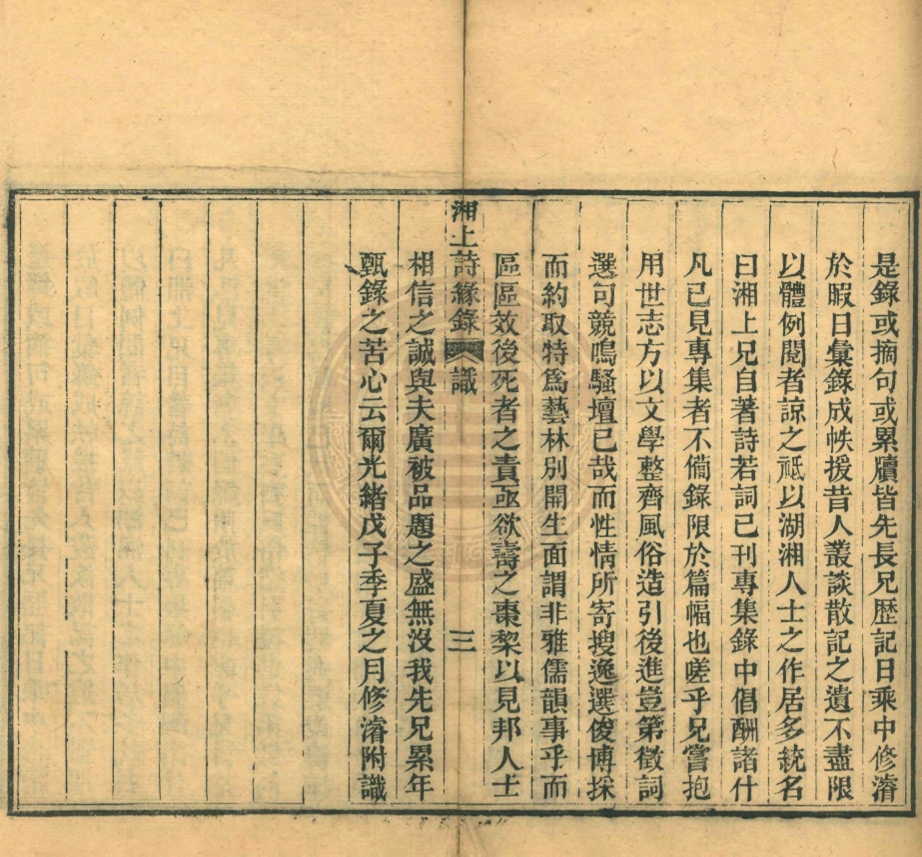 是錄或摘句或累牘皆先長兄歷記日乘中修濬
於暇日彙錄成帙援昔人叢談散記之遺不盡限
以體例閱者諒之祗以湖湘人士之作居多統名
曰湘上兄自著詩若詞已刊專集錄中倡酬諸什
凡已見專集者不備錄限於篇幅也嗟乎兄嘗抱
用世志方以文學整齊風俗造引後進豈第徵詞
選句競鳴騷壇已哉而性情所寄搜逸選俊博採
而約取特爲藝林別開生面謂非雅儒韻事乎而
區區效後死者之責亟欲壽之棗棃以見邦人士
湘上詩緣錄 識 三
相信之誠與夫廣被品題之盛無沒我先兄累年
甄錄之苦心云爾光緒戊子季夏之月修濬附識